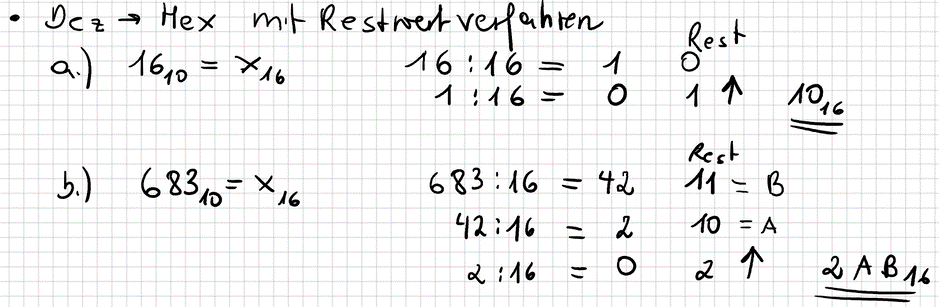 • Dez → Hex mit Restwertverfahren
Rest
a.) 16₁₀ = x₁₆ 16 : 16 = 1 0
1 : 16 = 0 1 ↑ 10₁₆
Rest
b.) 683₁₀ = x₁₆ 683 : 16 = 42 11 = B
42 : 16 = 2 10 = A
2 : 16 = 0 2 ↑ 2AB₁₆